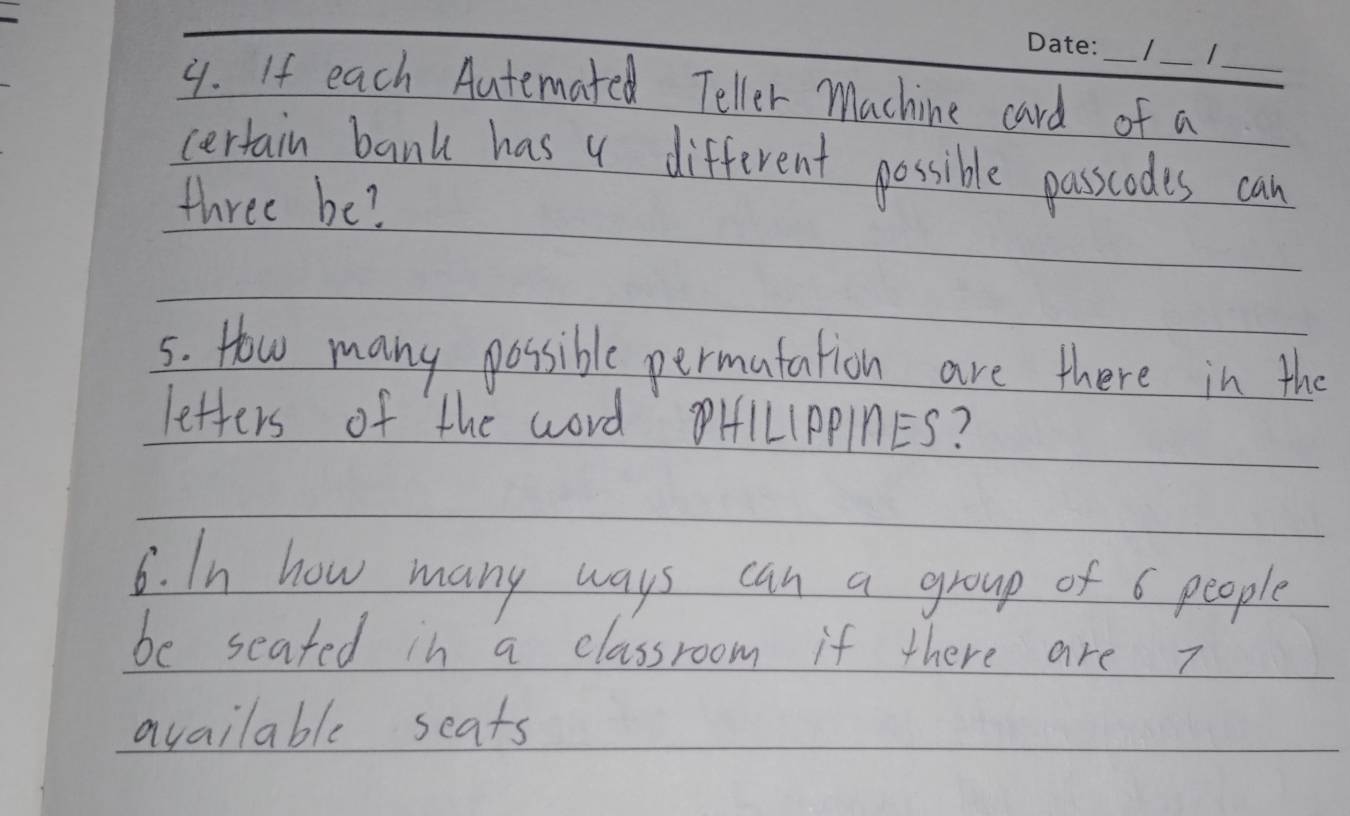 Date: __/__/__
4. If each Autemated Teller Machine card of a
certain bank has 4 different possible passcodes can
three be?
5. How many possible permutation are there in the
letters of the word PHILIPPINES?
6. In how many ways can a group of 6 people
be seated in a classroom if there are 7
available seats